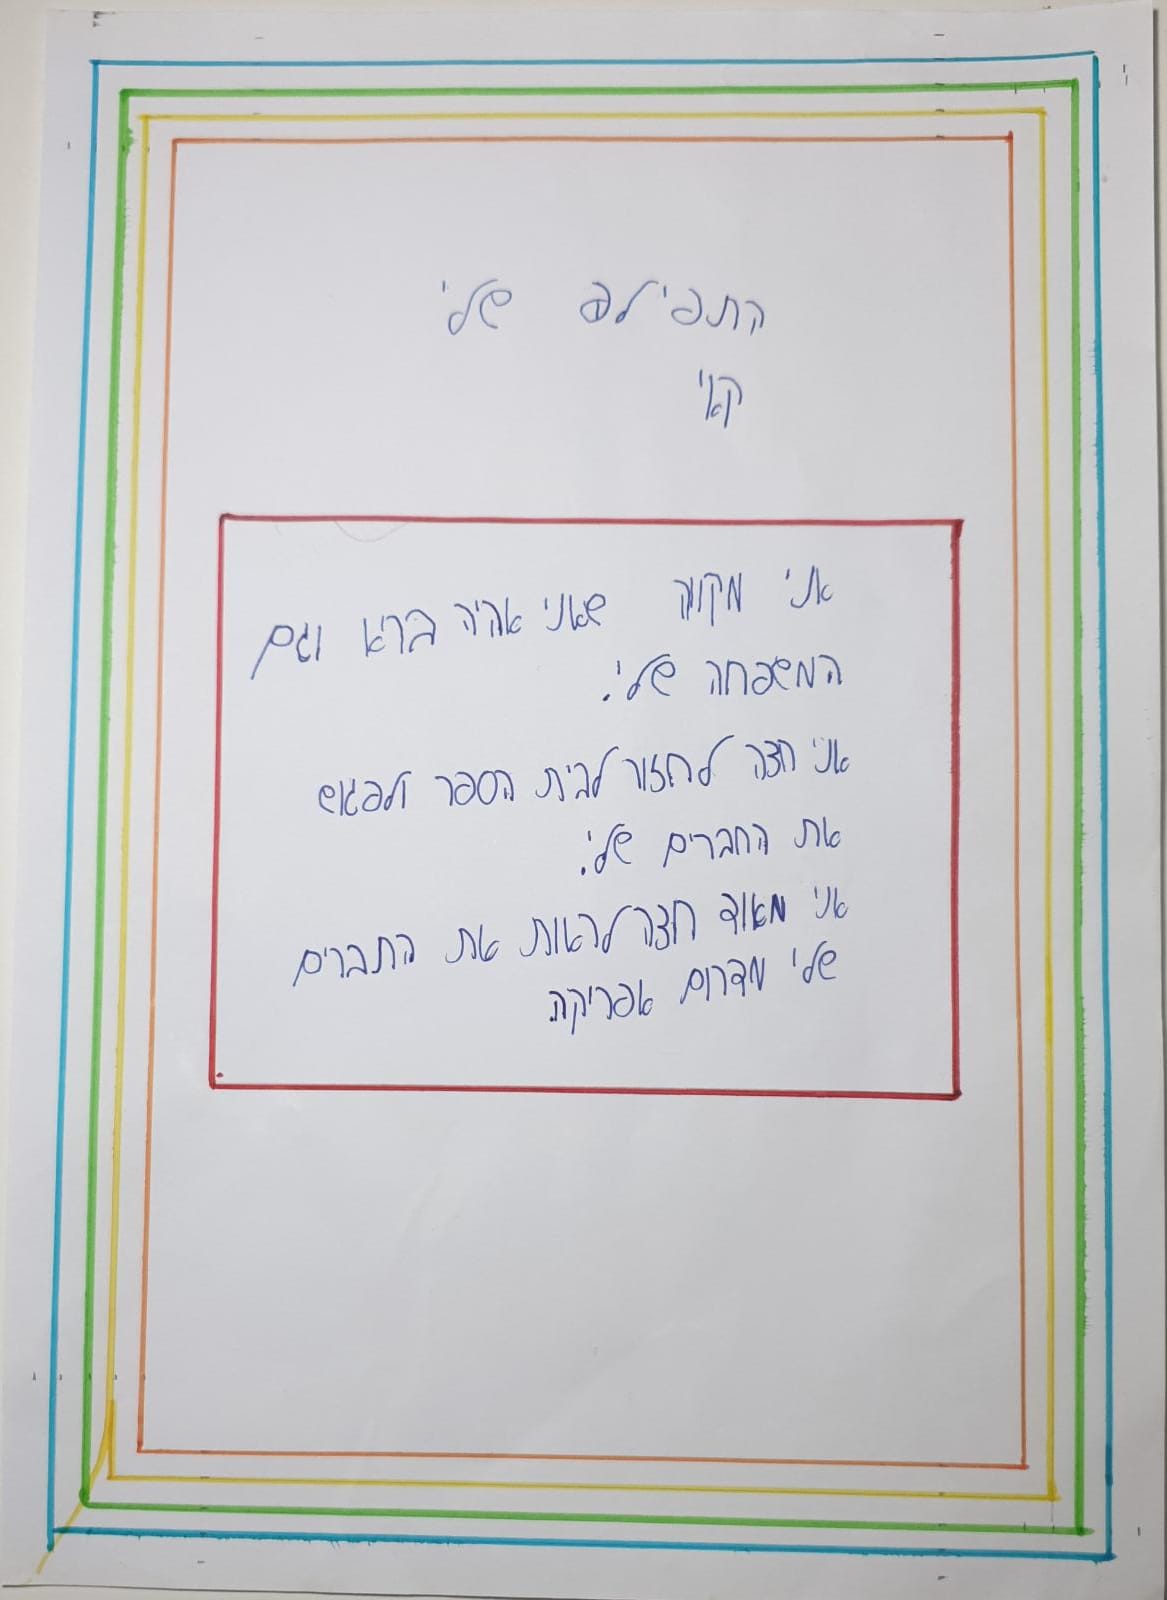 התפילה שלי
קאי
אני מקווה שאני אהיה בריא וגם
המשפחה שלי.
אני רוצה לחזור לבית הספר ולפגוש
את החברים שלי.
אני מאוד רוצה לראות את החברים
שלי מדרום אפריקה